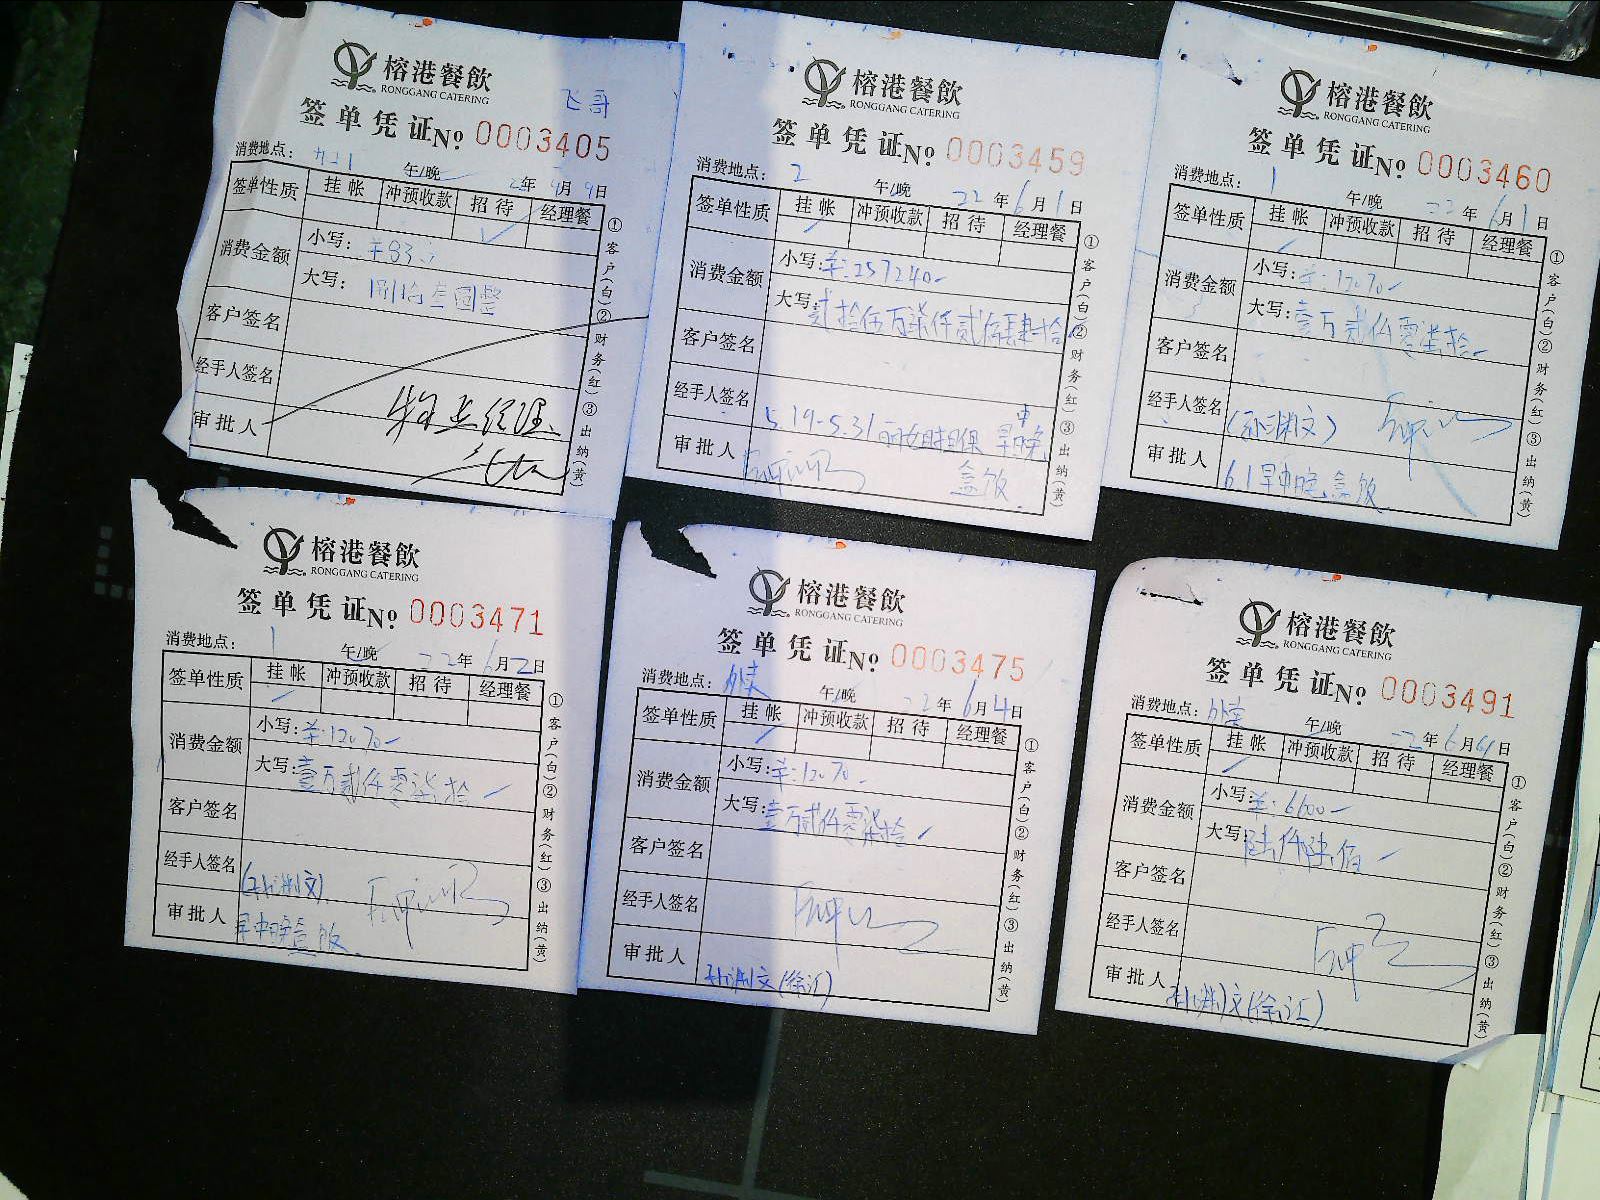 榕港餐飲
RONGGANG CATERING
飞哥
签单凭证 No 0003405
消费地点:
午/晚 22年 9月 9日
签单性质 挂帐 冲预收款 招待 经理餐
消费金额
小写: ¥83
大写: 捌拾叁圆整
客户签名
经手人签名
审批人
①客户(白)②财务(红)③出纳(黄)
榕港餐飲
RONGGANG CATERING
签单凭证 No 0003459
消费地点: 2
午/晚 22年 6月 1日
签单性质 挂帐 冲预收款 招待 经理餐
消费金额
小写: ¥:257240-
大写: 贰拾伍万柒仟贰佰肆拾
客户签名
经手人签名
5.19-5.31 早中晚
审批人
盒饭
①客户(白)②财务(红)③出纳(黄)
榕港餐飲
RONGGANG CATERING
签单凭证 No 0003460
消费地点: 1
午/晚 22年 6月 1日
签单性质 挂帐 冲预收款 招待 经理餐
消费金额
小写: ¥:12070-
大写: 壹万贰仟零柒拾-
客户签名
经手人签名 (孙渊文)
审批人 6.1早中晚盒饭
①客户(白)②财务(红)③出纳(黄)
榕港餐飲
RONGGANG CATERING
签单凭证 No 0003471
消费地点: 1
午/晚 22年 6月 2日
签单性质 挂帐 冲预收款 招待 经理餐
消费金额
小写: ¥:12070-
大写: 壹万贰仟零柒拾
客户签名
经手人签名 (孙渊文)
审批人 早中晚盒饭
①客户(白)②财务(红)③出纳(黄)
榕港餐飲
RONGGANG CATERING
签单凭证 No 0003475
消费地点: 外卖
午/晚 22年 6月 4日
签单性质 挂帐 冲预收款 招待 经理餐
消费金额
小写: ¥:12070-
大写: 壹万贰仟零柒拾
客户签名
经手人签名
审批人 孙渊文(徐汇)
①客户(白)②财务(红)③出纳(黄)
榕港餐飲
RONGGANG CATERING
签单凭证 No 0003491
消费地点: 外卖
午/晚 22年 6月 日
签单性质 挂帐 冲预收款 招待 经理餐
消费金额
小写: ¥:6600-
大写: 陆仟陆佰
客户签名
经手人签名
审批人 孙渊文(徐汇)
①客户(白)②财务(红)③出纳(黄)